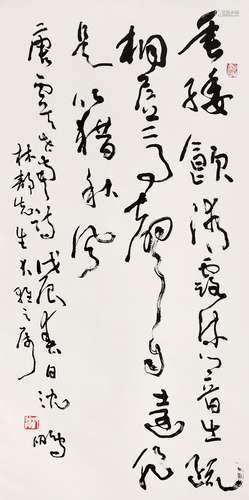 垂緌飲清露流響出疏
桐居高聲自遠非
是藉秋风
唐虞世南詩 戊辰春日沈鵬
林都先生大雅之属